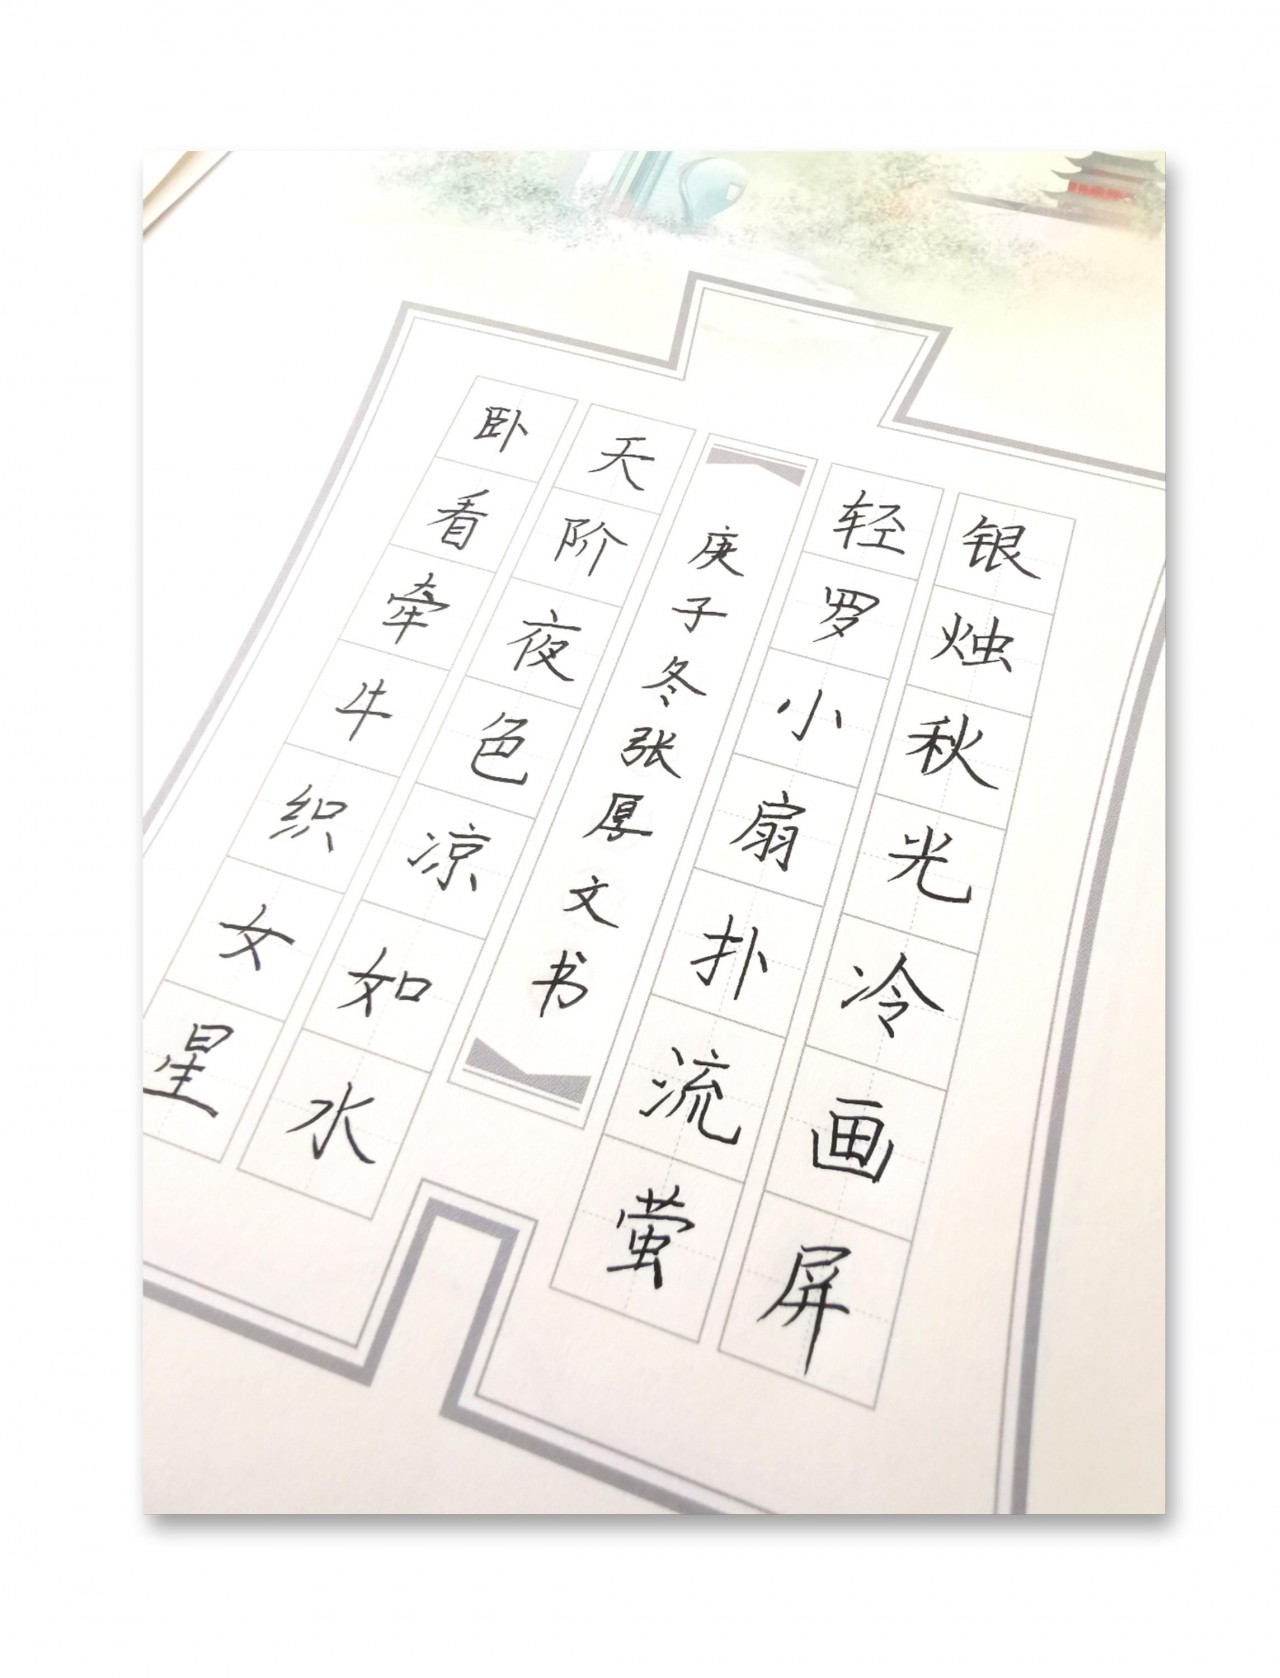 银烛秋光冷画屏
轻罗小扇扑流萤
庚子冬张厚文书
天阶夜色凉如水
卧看牵牛织女星